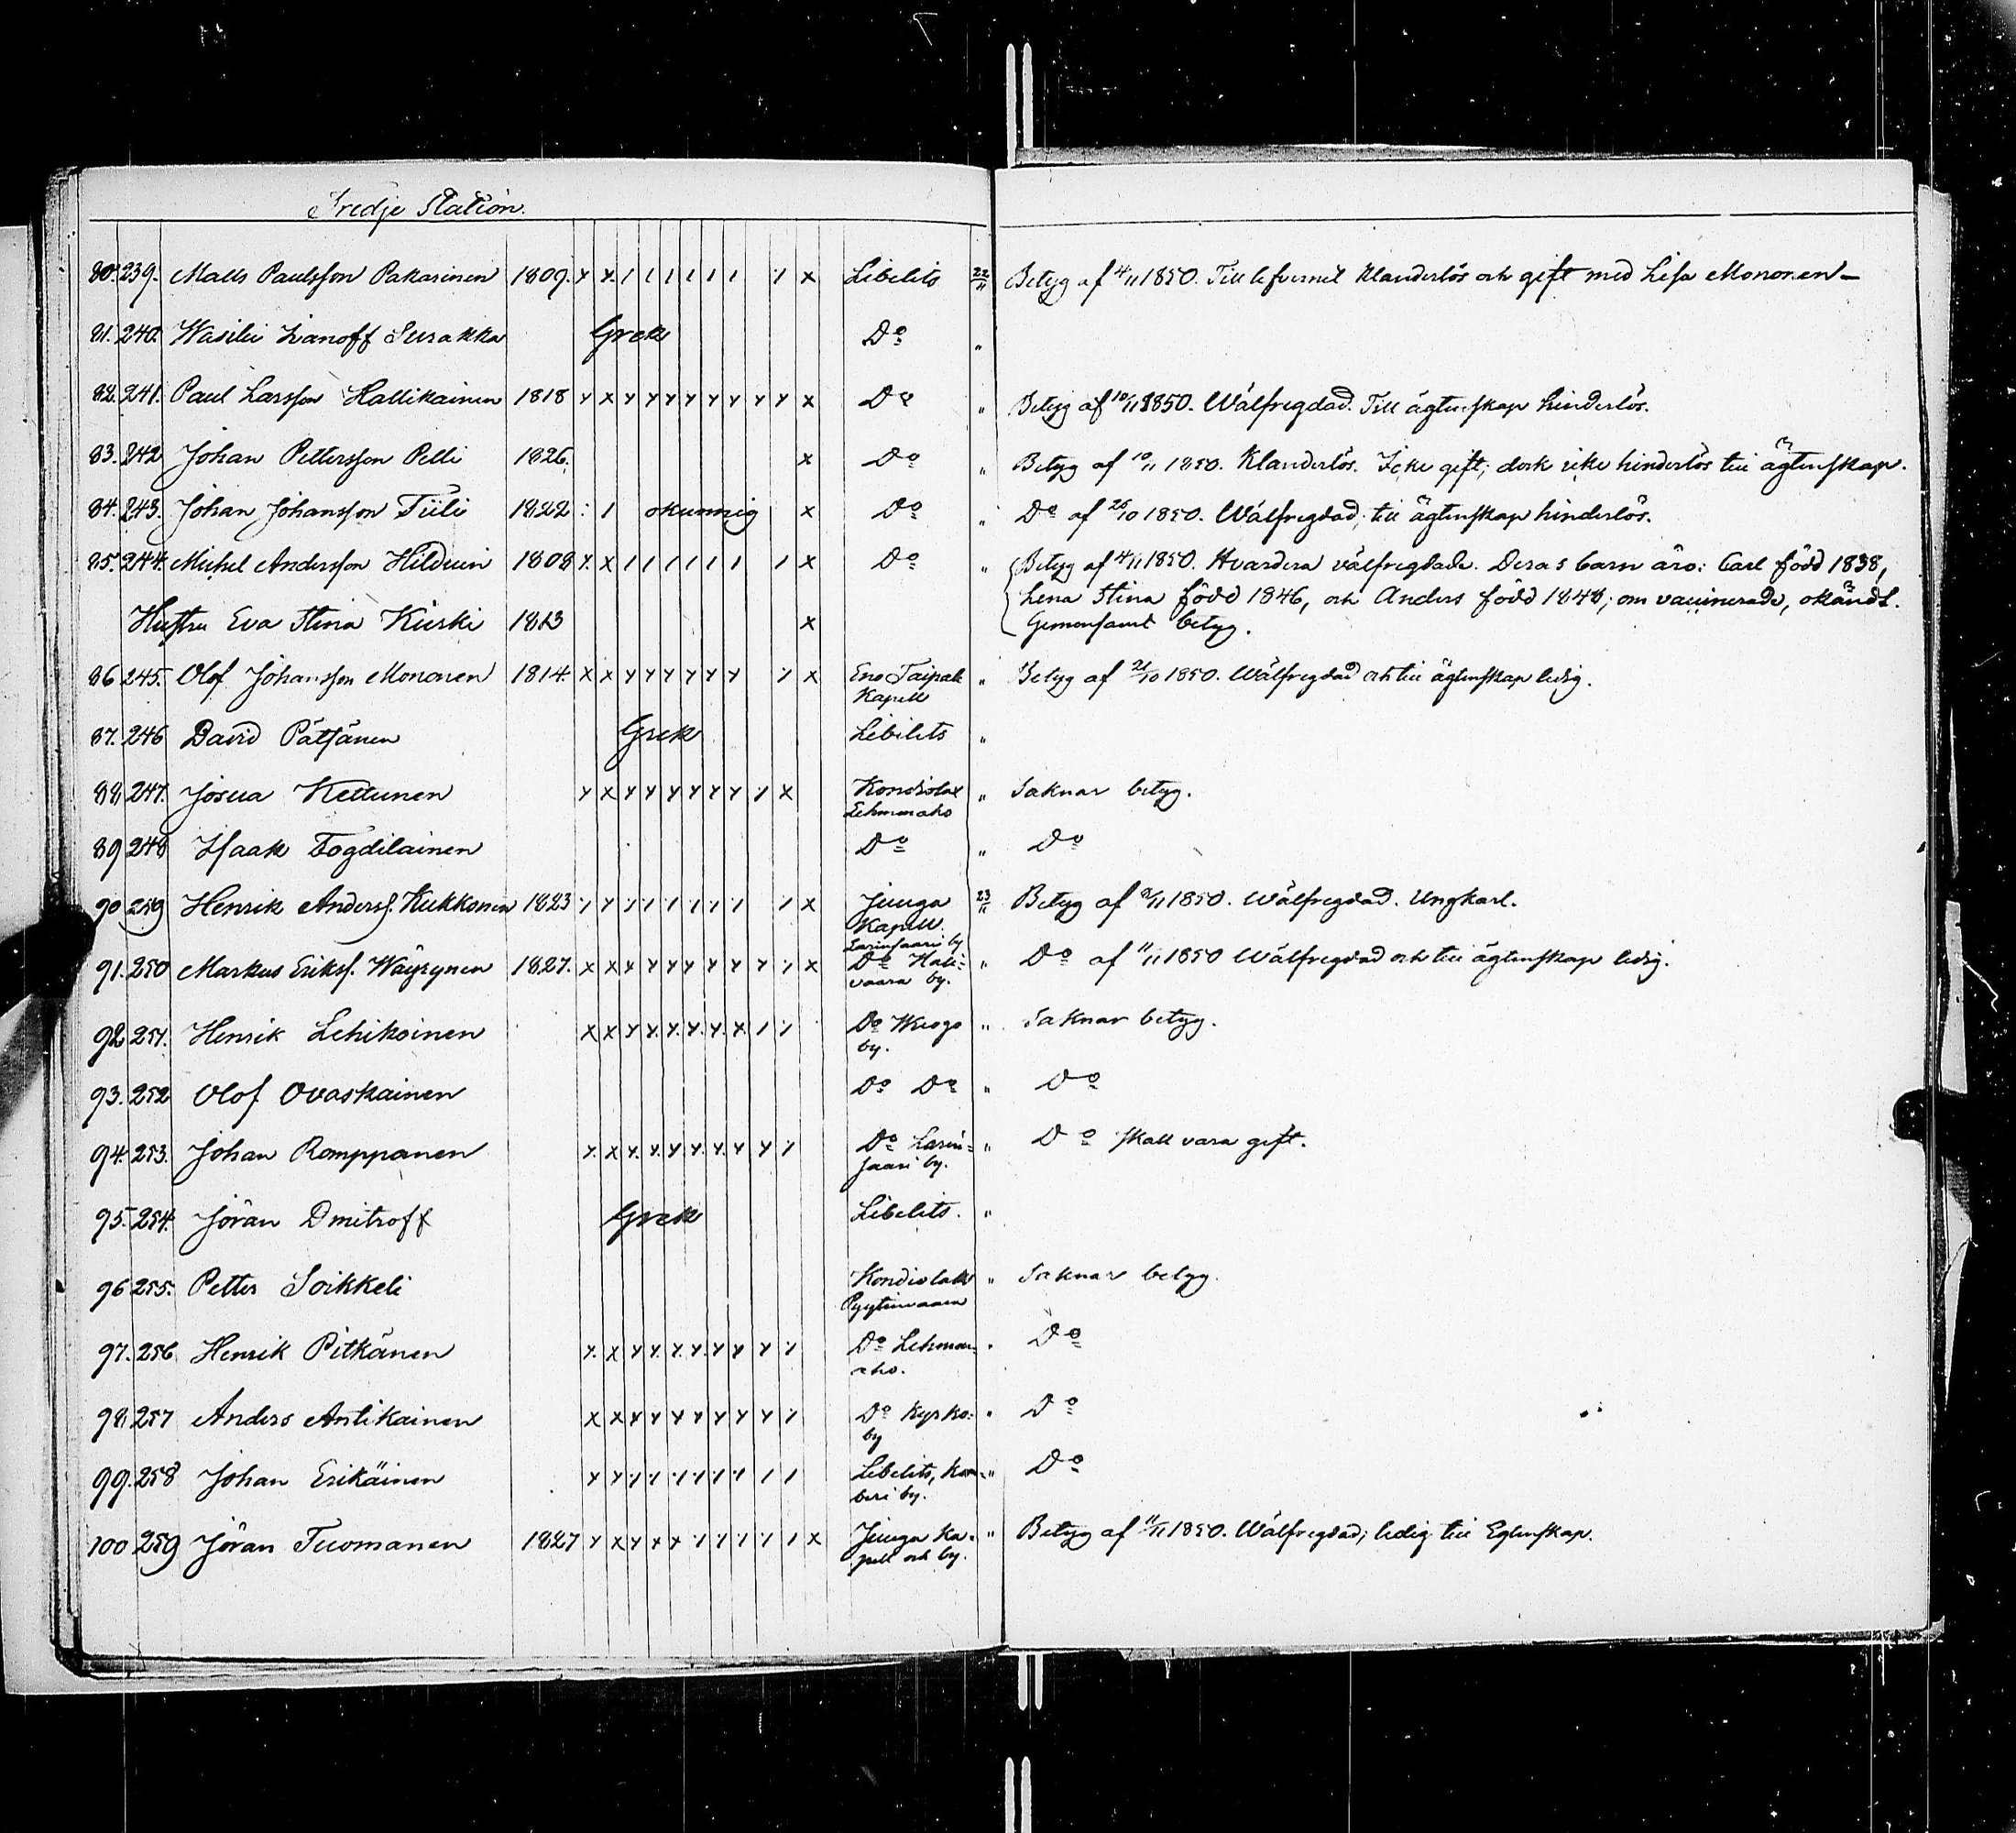 Tredje Station.
80. 239. Matts Paulsson Pakarinen 1809. x x / / / / / / / x Libelits 22/11 Betyg af 4/11 1850. Till lefvernet klanderlös och gift med Lisa Mononen
81. 240. Wasilei Ivanoff Surakka Grek Do "
82. 241. Paul Larsson Hallikainen 1818 x x x x x x x x x x x Do " Betyg af 10/11 1850. Wälfregdad. Till ägtenskap hinderlös.
83. 242 Johan Pettersson Pelli 1826. x Do " Betyg af 10/11 1850. Klanderlös. Icke gift; dock icke hinderlös till ägtenskap.
84. 243. Johan Johansson Tiili 1822 : / okunnig x Do " Do af 26/10 1850. Wälfregdad; till ägtenskap hinderlös.
85. 244. Michel Andersson Hilduin 1808 x x / / / / / / / x Do " Betyg af 4/11 1850. Hvardera välfregdade. Deras barn äro: Carl född 1838,
Lena Stina född 1846, och Anders född 1848; om vaccinerade, okändt.
Hustru Eva Stina Kiiski 1813 x Gemensamt betyg.
86 245. Olof Johansson Mononen 1814. x x x x x x x x / x Eno Taipale " Betyg af 21/10 1850. Wälfregdad och till ägtenskap ledig.
Kapell
87. 246 David Pätsänen Grek Libelits "
88. 247. Josua Kettunen x x x x x x x x / x Kondiolax " Saknar betyg.
Lehmonaho
89 248 Isaak Togdilainen Do " Do
90 259 Henrik Anderss. Kukkonen 1823 / x / / / / / / / x Juuga 23/11 Betyg af 9/11 1850. Wälfregdad. Ungkarl.
Kapell.
Larinsaari by
91. 250 Markus Erikss. Wäyrynen 1827. x x x x x x x x x / x Do Hali= " Do af 11/11 1850 Wälfregdad och till ägtenskap ledig.
vaara by.
92 251. Henrik Lehikoinen x x x x x x x x / / Do Wuogo " Saknar betyg.
by.
93. 252 Olof Ovaskainen Do Do " Do
94. 253. Johan Romppanen x x x x x x x x x / Do Larin= " Do skall vara gift.
saari by.
95. 254. Jöran Dmitroff Grek Libelits. "
96 255. Petter Soikkeli Kondiolaks " Saknar betyg.
Pyytivaara
97. 256 Henrik Pitkänen x x x x x x x x x / Do Lehmon= " Do
aho.
98. 257 Anders Antikainen x x x x x x x x x / Do Kyrko= " Do
by
99. 258 Johan Erikäinen x x / / / / / / / / Libelits, Kom= " Do
beri by.
100 259 Jöran Tuomanen 1827 x x x x x / / / / / x Juuga Ka= " Betyg af 11/11 1850. Wälfregdad; ledig till Egtenskap.
pell och by.